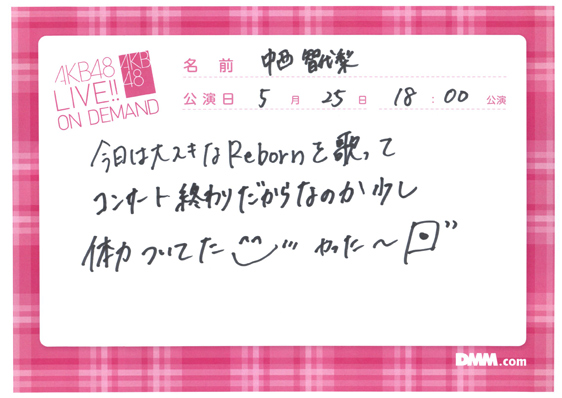 AKB48
LIVE!!
ON DEMAND
AKB
48
名前 中西智代梨
公演日 5月25日 18:00公演
今日は大スキなRebornを歌って
コンサート終わりだからなのか少し
体力ついてた やった〜
DMM.com